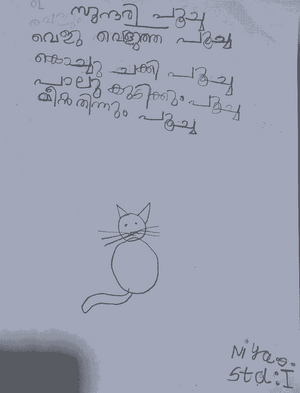 സുന്ദരി പൂച്ച
വെളു വെളുത്ത പൂച്ച
കൊച്ചു ചക്കി പൂച്ച
പാലു കുടിക്കും പൂച്ച
മീൻ തിന്നും പൂച്ച
Niya
Std: I